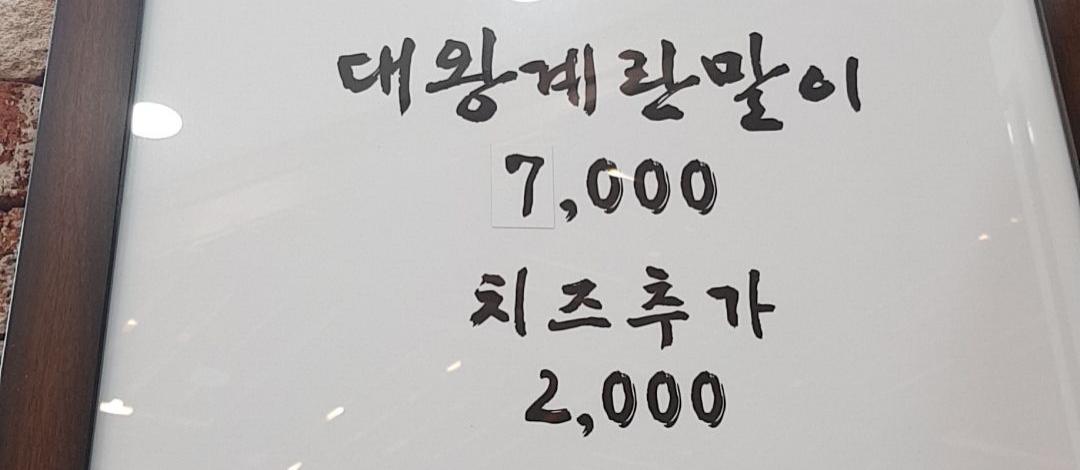 대왕계란말이
7,000
치즈추가
2,000